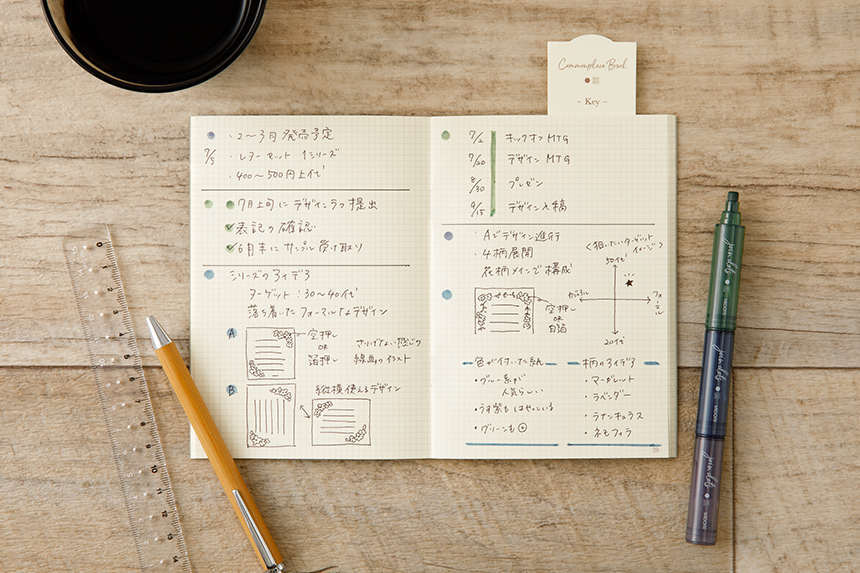 Commonplace Book
– Key –
・2〜3月 発売予定
7/5 ・レターセット 1シリーズ
・400〜500円上代
7月上旬に デザインラフ 提出
表記の確認
6月末に サンプル 受け取り
シリーズのアイデア
ターゲット：30〜40代
落ち着いたフォーマルなデザイン
A
空押し
OR
箔押し
さりげない感じの
線画のイラスト
B
縦横使えるデザイン
7/2 キックオフ MTG
7/20 デザイン MTG
8/30 プレゼン
9/15 デザイン入稿
・Aでデザイン進行
・4柄展開
花柄メインで構成
空押し
OR
白箔
＜狙いたいターゲットイメージ＞
50代
カジュアル
フォーマル
20代
色が付いた紙
・ブルー系が
人気らしい
・うす紫も はやっている
・グリーンも◎
柄のアイデア
・マーガレット
・ラベンダー
・ラナンキュラス
・ネモフィラ
0
1
2
3
4
5
6
7
8
9
10
11
12
13
14
MIDORI
MIDORI
MIDORI